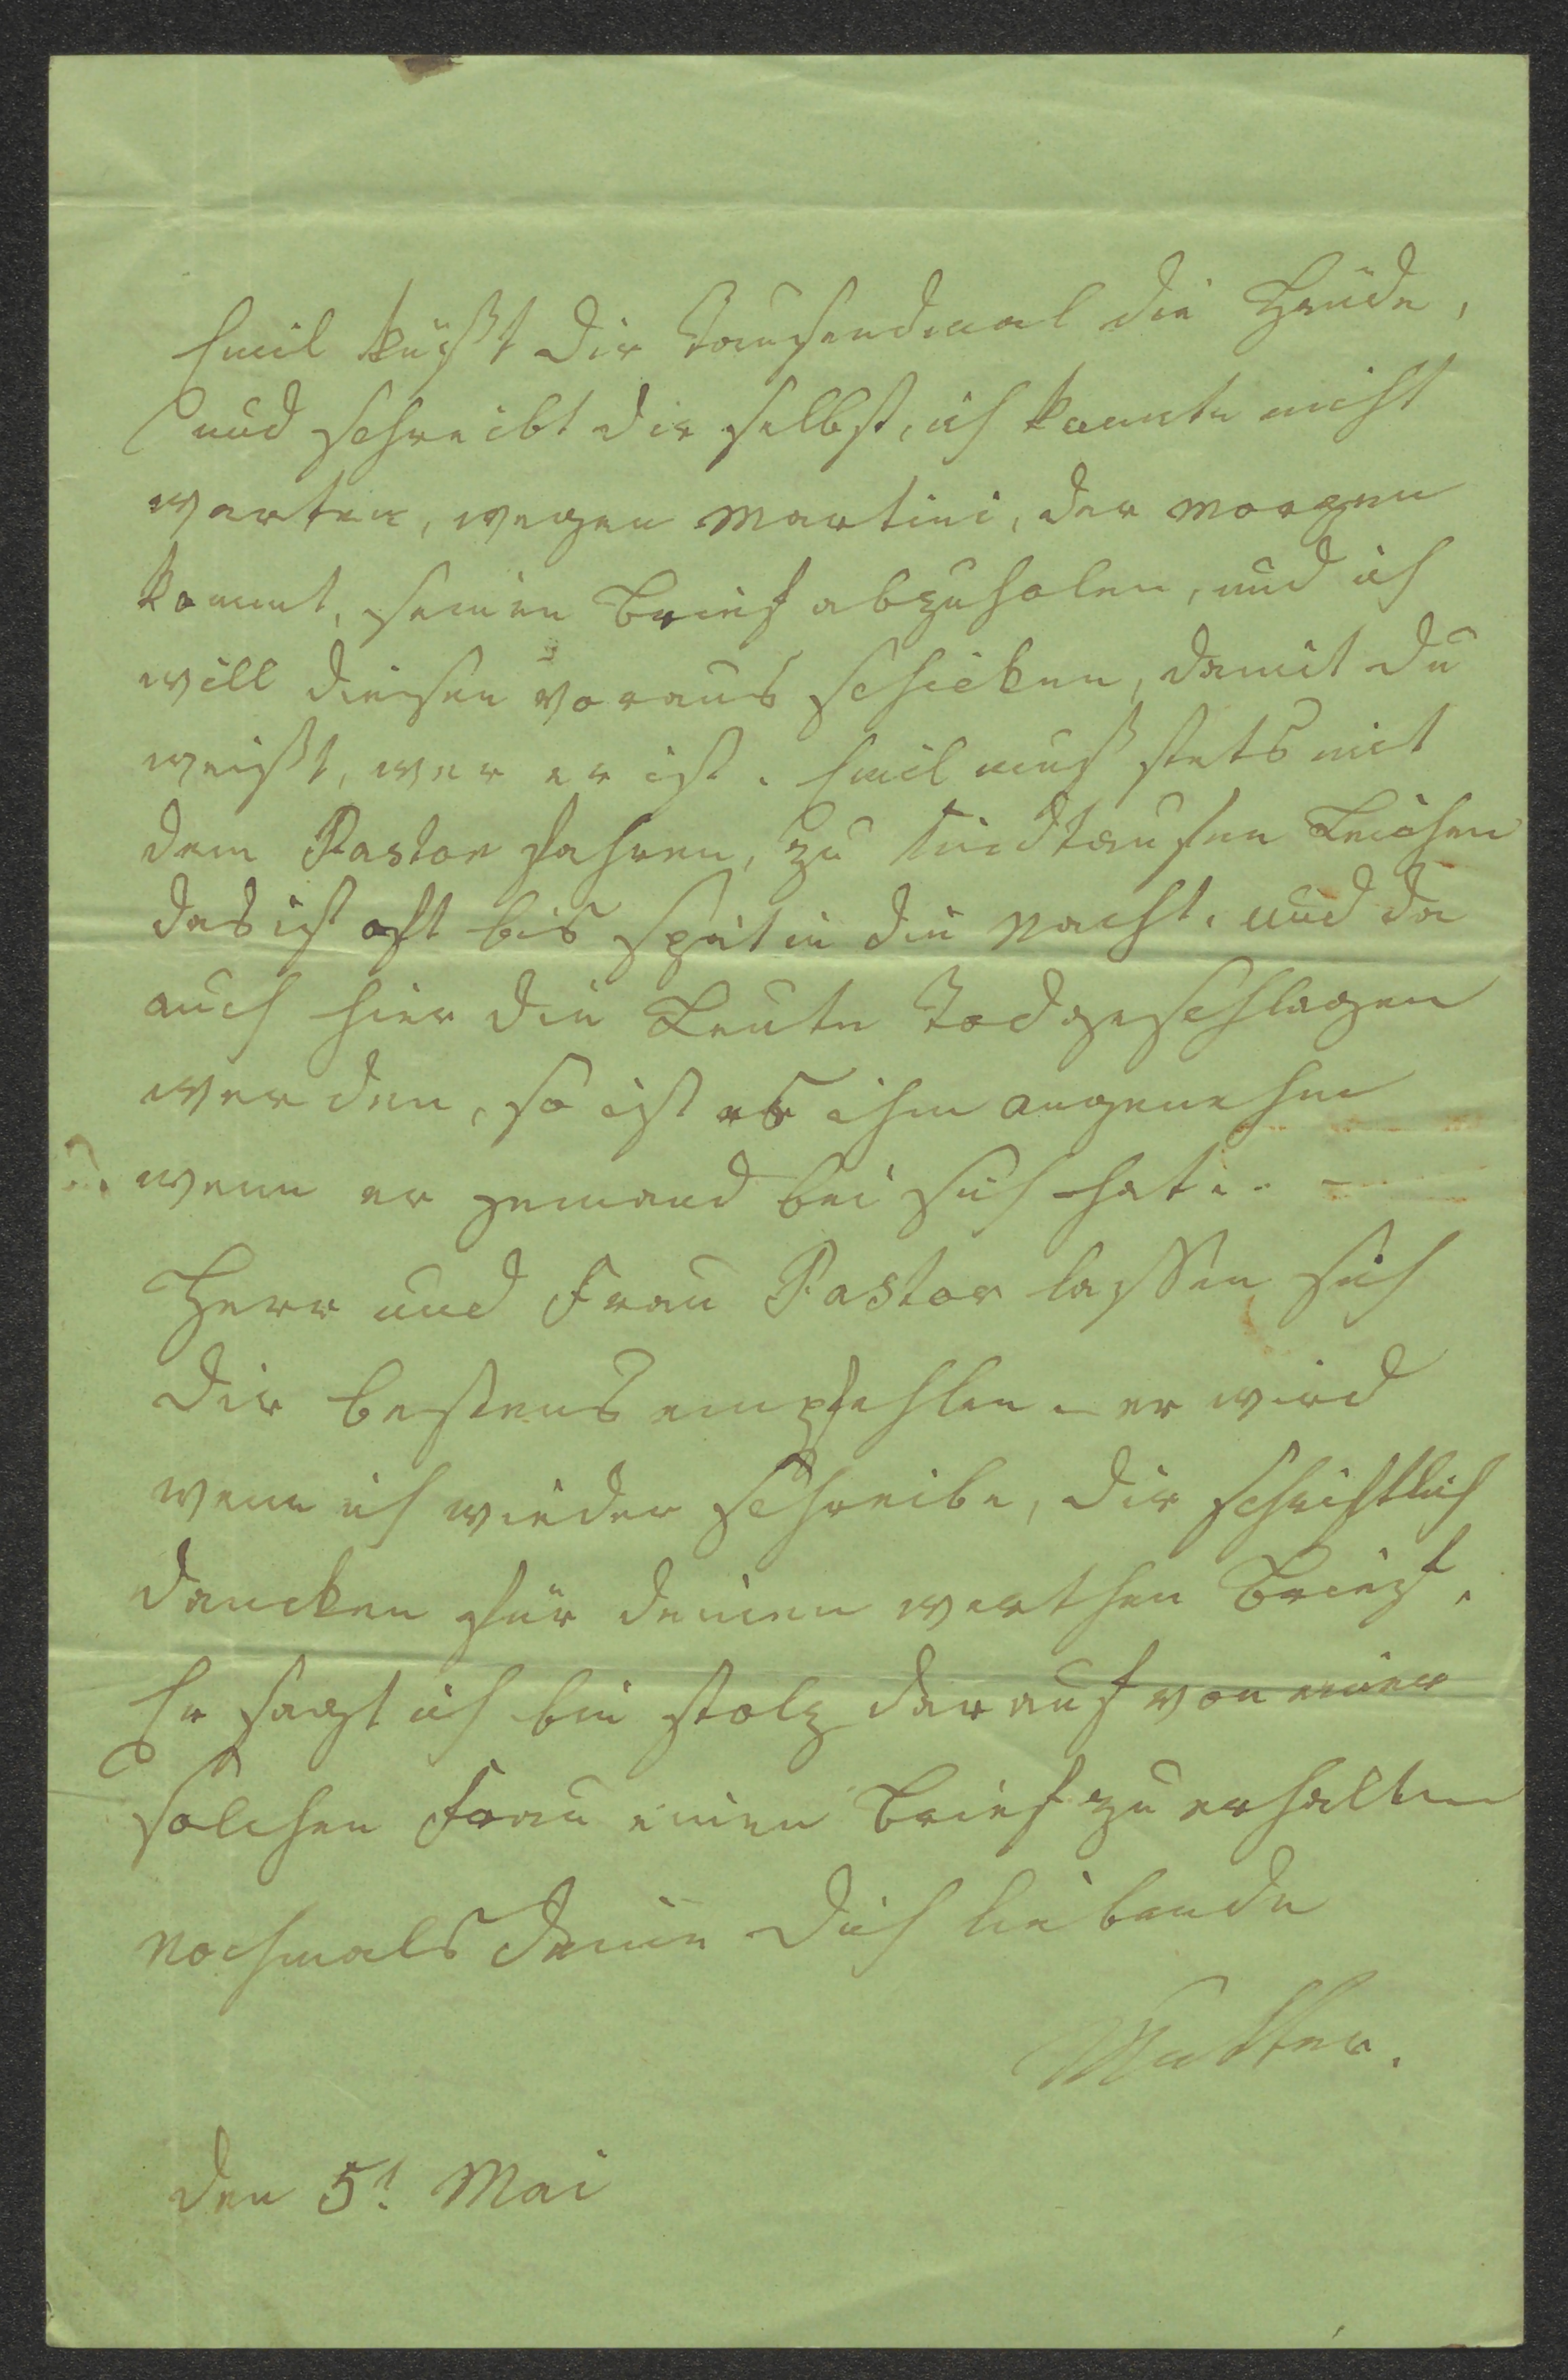 Emil küßt dir Tausendmal die Hände,
und schreibt dir selbst, ich konnte nicht
warten, wegen Martini, der morgen
kommt, seinen Brief abzuholen, und ich
will diesen voraus schicken, damit du
weißt, wer er ist. Emil muß stets mit
dem Pastor fahren, zu Kindtaufen Leichen
das ist oft bis spät in die Nacht. und da
auch hier die Leute Todgeschlagen
werden, so ist es ihm angenehm
wenn er jemand bei sich hat. -
Herr und Frau Pastor lassen sich
dir bestens empfehlen - er wird
wenn ich wieder schreibe, dir schriftlich
dancken für deinen werthen Brief.
Er sagt ich bin stolz darauf von einer
solchen Frau einen Brief zu erhalten
nochmals deine dich liebende
Mutter.
den 5t. Mai